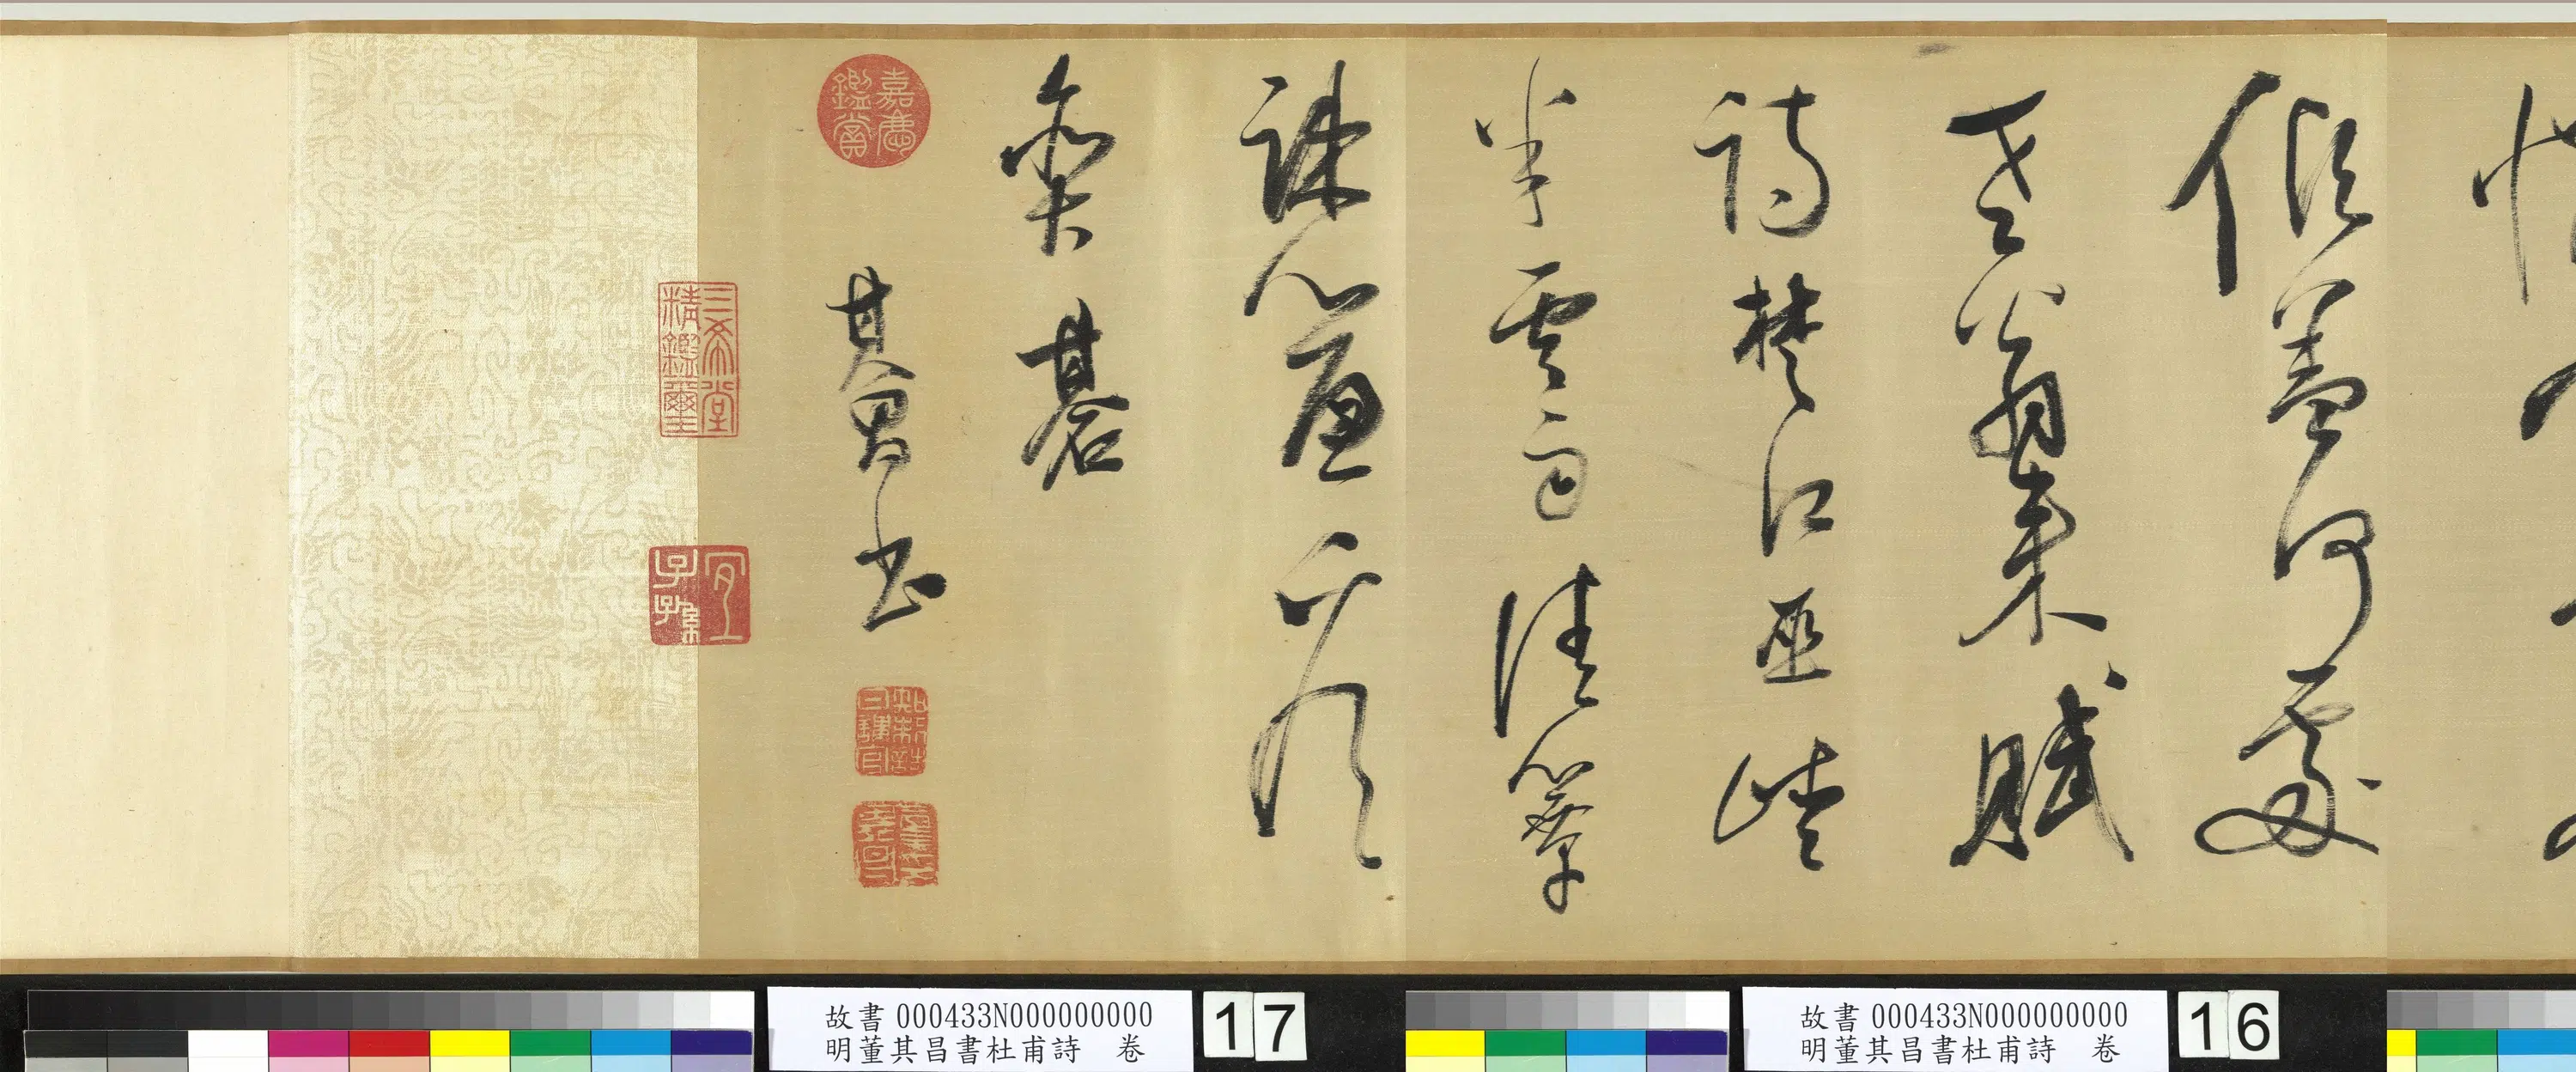 傾蓋何處
老翁來賦
詩楚江巫峽
半雲雨清簟
疎簾看
奕碁
其昌書
嘉慶鑑賞
三希堂精鑑璽
宜子孫
知制誥日講官
故書 000433N000000000
明董其昌書杜甫詩 卷
17
故書 000433N000000000
明董其昌書杜甫詩 卷
16